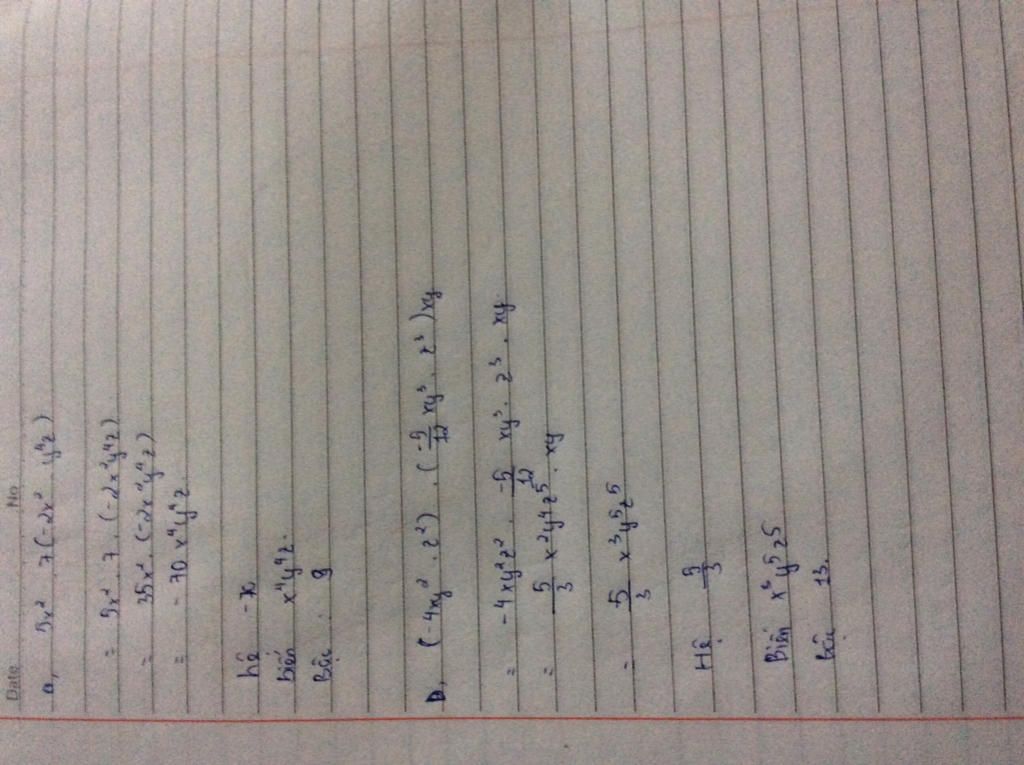 Date No
a, 5x² 7(-2x² . y⁴z)
= 5x² . 7 . (-2x²y⁴z)
= 35x² . (-2x²y⁴z)
= - 70 x⁴y⁴z
hệ
biến x⁴y⁴z.
Bậc : 9
b, (-4xy² . z²) . (-5/12 xy³ . z³) xy
= -4xy²z² . -5/12 xy³ . z³ . xy
= 5/3 x²y⁴z⁵ . xy
= 5/3 x³y⁵z⁵
Hệ 5/3
Biến x³y⁵z⁵
Bậc 13.